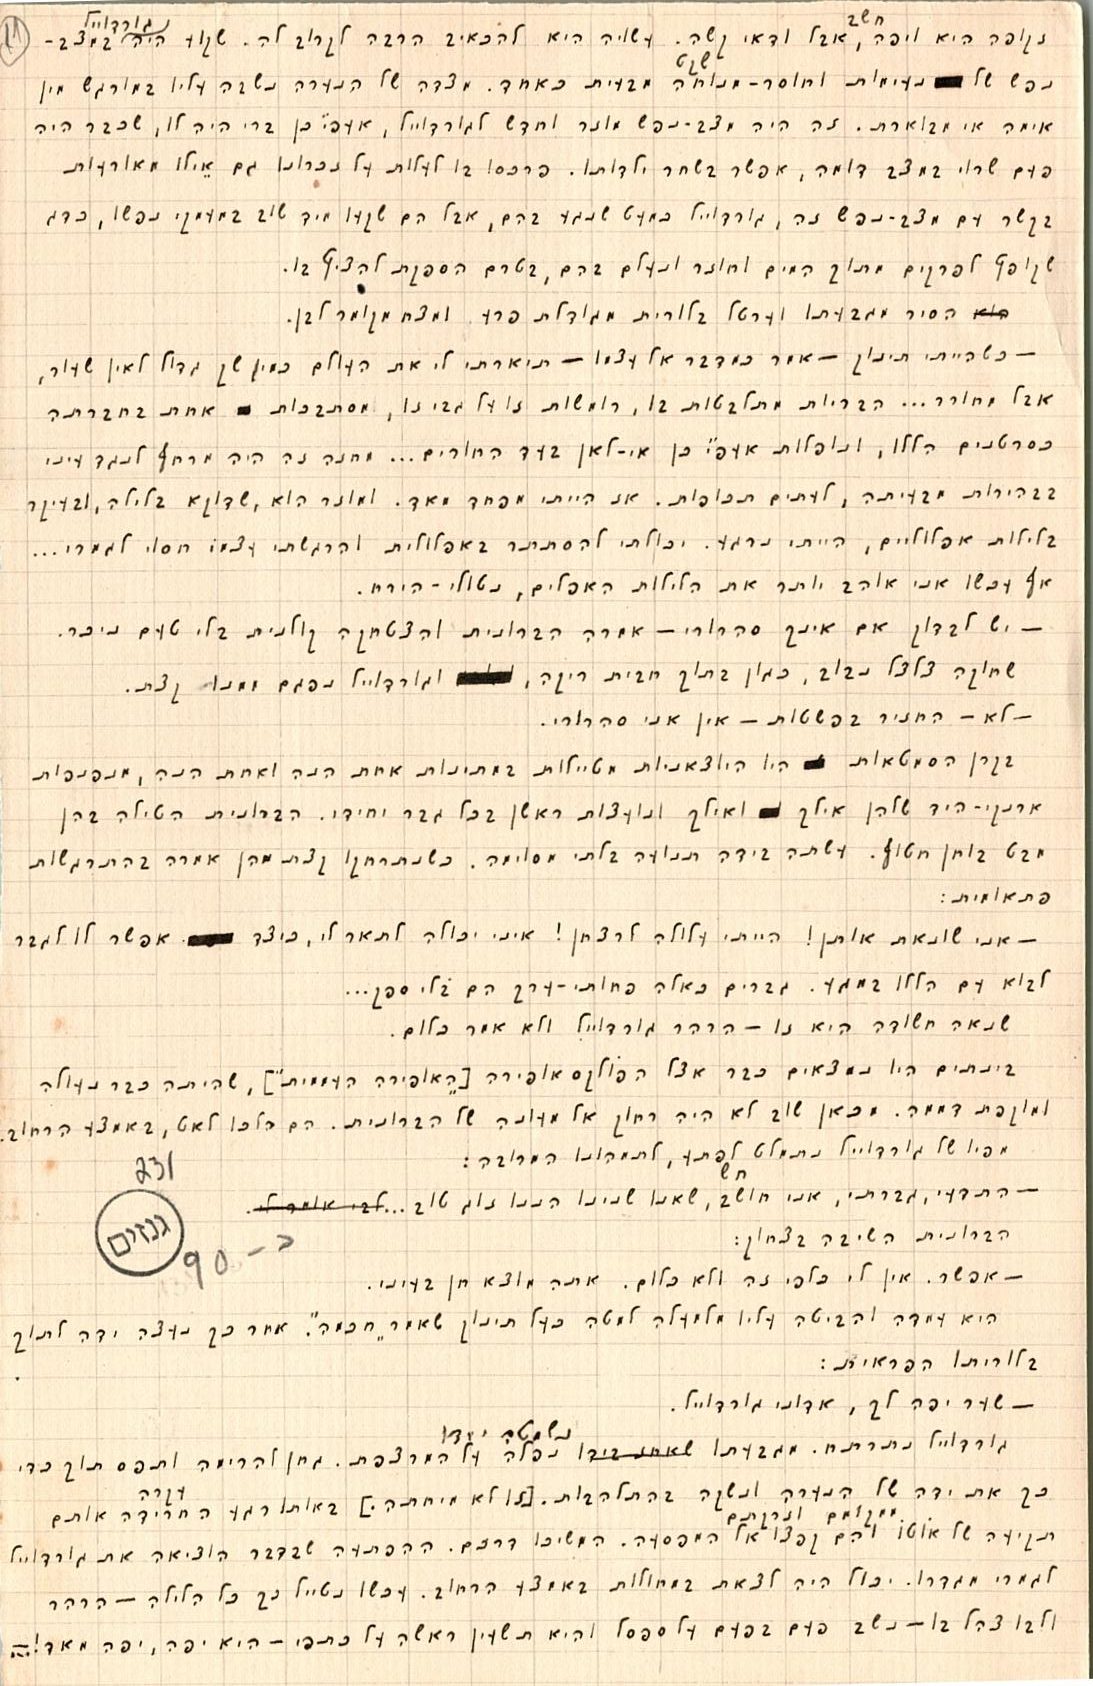 11
זקופה היא ויפה, חשב אבל ודאי קשה. עשויה היא להכאיב הרבה לקרוב לה. שקוע היה גורדווייל במצב-
נפש של נעימות וחוסר-מנוחה שקט מבעית כאחד. מצדה של הנערה נשבה עליו במורגש מין
אימה אי מבוארת. זה היה מצב-נפש מוזר וחדש לגורדווייל, אעפ״כ כן ברי היה לו, שכבר היה
פעם שרוי במצב דומה, אפשר בשחר ילדותו. פרכסו בו לעלות על זכרונו גם אילו מאורעות
בקשר עם מצב-נפש זה, גורדווייל כמעט שנגע בהם, אבל הם שקעו מיד שוב במעמקי נפשו, כדג
שקופץ לפרקים מתוך המים וחוזר ונעלם בהם, בטרם הספקת להציץ בו.
הוא הסיר מגבעתו וערטל בלורית מגודלת פרע ומצח מקומר לבן.
— כשהייתי תינוק — אמר כמדבר אל עצמו — תיארתי לי את העולם כמין שק גדול לאין שעור,
אבל מחורר... הבריות מתלבטות בו, רומשות זו על גבי זו, מסתבכות אחת בחברתה
כסרטנים הללו, ונופלות אעפ״י כן אי-לאן בעד החורים... מחזה זה היה מרחף לנגד עיני
בבהירות מבעיתה, לעתים תכופות. אז הייתי מפחד מאד. ומוזר הוא, שדוקא בלילה, ובעיקר
בלילות אפלוליים, הייתי נרגע. יכולתי להסתתר באפלולית והרגשתי עצמי חסוי לגמרי...
אף עכשו אני אוהב יותר את הלילות האפלים, נטולי-הירח.
— יש לבדוק אם אינך סהרורי — אמרה הברונית והצטחקה קולנית בלי טעם ניכר.
שחוקה צלצל נבוב, כגון בתוך חבית ריקה, וגורדווייל נפגם ממנו קצת.
— לא — החזיר בפשטות — אין אני סהרורי.
בקרן הסמטאות היו היוצאניות מטיילות במתינות אחת הנה ואחת הנה, מנפנפות
ארנקי-היד שלהן אילך ואילך ונועצות ראשן בכל גבר יחידי. הברונית הטילה בהן
מבט בוחן חטוף. עשתה בידה תנועה בלתי מסוימה. כשנתרחקו קצת מהן אמרה בהתרגשות
פתאומית:
— אני שונאת אותן! הייתי עלולה לרצחן! איני יכולה לתאר לי, כיצד אפשר לו לגבר
לבוא עם הללו במגע. גברים כאלה פחותי-ערך הם בלי ספק...
שנאה חשודה היא זו — הרהר גורדווייל ולא אמר כלום.
בינתים היו נמצאים כבר אצל הפולקסאופירה [„האופירה העממית״], שהיתה כבר נעולה
ומוקפת דממה. מכאן שוב לא היה רחוק אל מעונה של הברונית. הם הלכו לאט, באמצע הרחוב.
מפיו של גורדווייל נתמלט לפתע, לתמהונו המרובה:
— התדעי, גברתי, אני חושב, חש שאנו שנינו הננו זוג טוב... לבי אומר לי.
הברונית השיבה בצחוק:
— אפשר. אין לי כלפי זה ולא כלום. אתה מוצא חן בעיני.
היא עמדה והביטה עליו מלמעלה למטה כעל תינוק שאמר „חכמה״. אחר כך נעצה ידה לתוך
בלוריתו הפראית:
— שער יפה לך, אדוני גורדווייל.
גורדווייל נתרתח. מגבעתו שאחז בידו נשמטה מידו נפלה על המרצפת. גחן להרימה ותפס תוך כדי
כך את ידה של הנערה ונשקה בהתלהבות. [זו לא מיחתה.] באותו רגע החרידה עקרה אותם
תקיעה של אוטו ממקומם וזרקתם והם קפצו אל המפסעה. המשיכו דרכם. ההפתעה שבדבר הוציאה את גורדווייל
לגמרי מגדרו. יכול היה לצאת במחולות באמצע הרחוב. עכשו נטייל כך כל הלילה — הרהר
ולבו צהל בו — נשב פעם בפעם על ספסל והיא תשעין ראשה על כתפי — היא יפה, יפה מאד!...
231
גנזים
כ-90